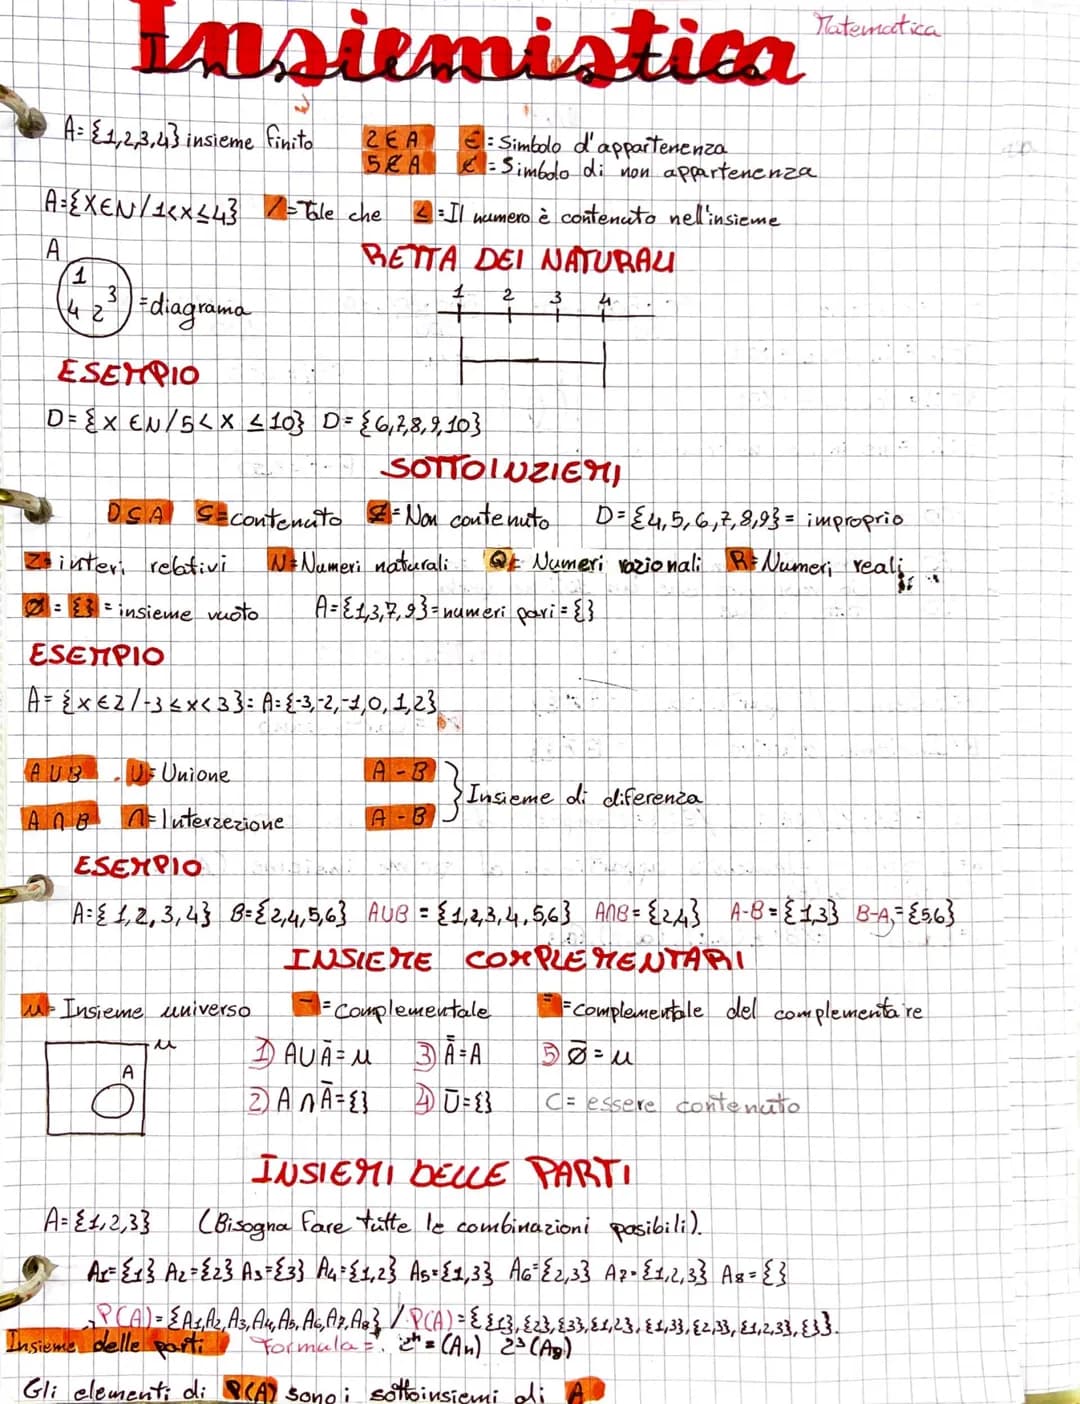 Insiemistica
Matematica
A={1,2,3,4} insieme finito
2∈A ∈: Simbolo d'appartenenza
5∉A ∉=Simbolo di non appartenenza
A={X∈N/1<x≤4} /=Tale che ≤=Il numero è contenuto nell'insieme
A
1
3
4 2
=diagrama
RETTA DEI NATURALI
1 2 3 4
ESEMPIO
D={x ∈N/5<x ≤10} D={6,7,8,9,10}
SOTTOINZIEMI
D⊆A ⊆=contenuto ⊈=Non contenuto D={4,5,6,7,8,9}= improprio
Z=interi relativi N=Numeri naturali Q= Numeri razionali R=Numeri reali
∅={}=insieme vuoto A={1,3,7,9}=numeri pari={}
ESEMPIO
A={x∈Z/-3≤x<3}= A={-3,-2,-1,0,1,2}
A∪B ∪=Unione
A∩B ∩=Interzezione
A-B
A-B
Insieme di diferenza
ESEMPIO
A={1,2,3,4} B={2,4,5,6} A∪B={1,2,3,4,5,6} A∩B={2,4} A-B={1,3} B-A={5,6}
INSIEME COMPLEMENTARI
μ= Insieme universo ¯=complementale ̿=complementale del complementare
μ
A
1) A∪Ā=μ 3) A̿=A 5) ∅̄=μ
2) A∩Ā={} 4) Ū={} C= essere contenuto
INSIEMI DELLE PARTI
A={1,2,3} (Bisogna fare tutte le combinazioni posibili).
A1={1} A2={2} A3={3} A4={1,2} A5={1,3} A6={2,3} A7={1,2,3} A8={}
P(A)={A1,A2,A3,A4,A5,A6,A7,A8} / P(A)={{1},{2},{3},{1,2},{1,3},{2,3},{1,2,3},{}}.
Insieme delle parti Formula=. 2ⁿ=(An) 2³(A8)
Gli elementi di P(A) sono i sottoinsiemi di A